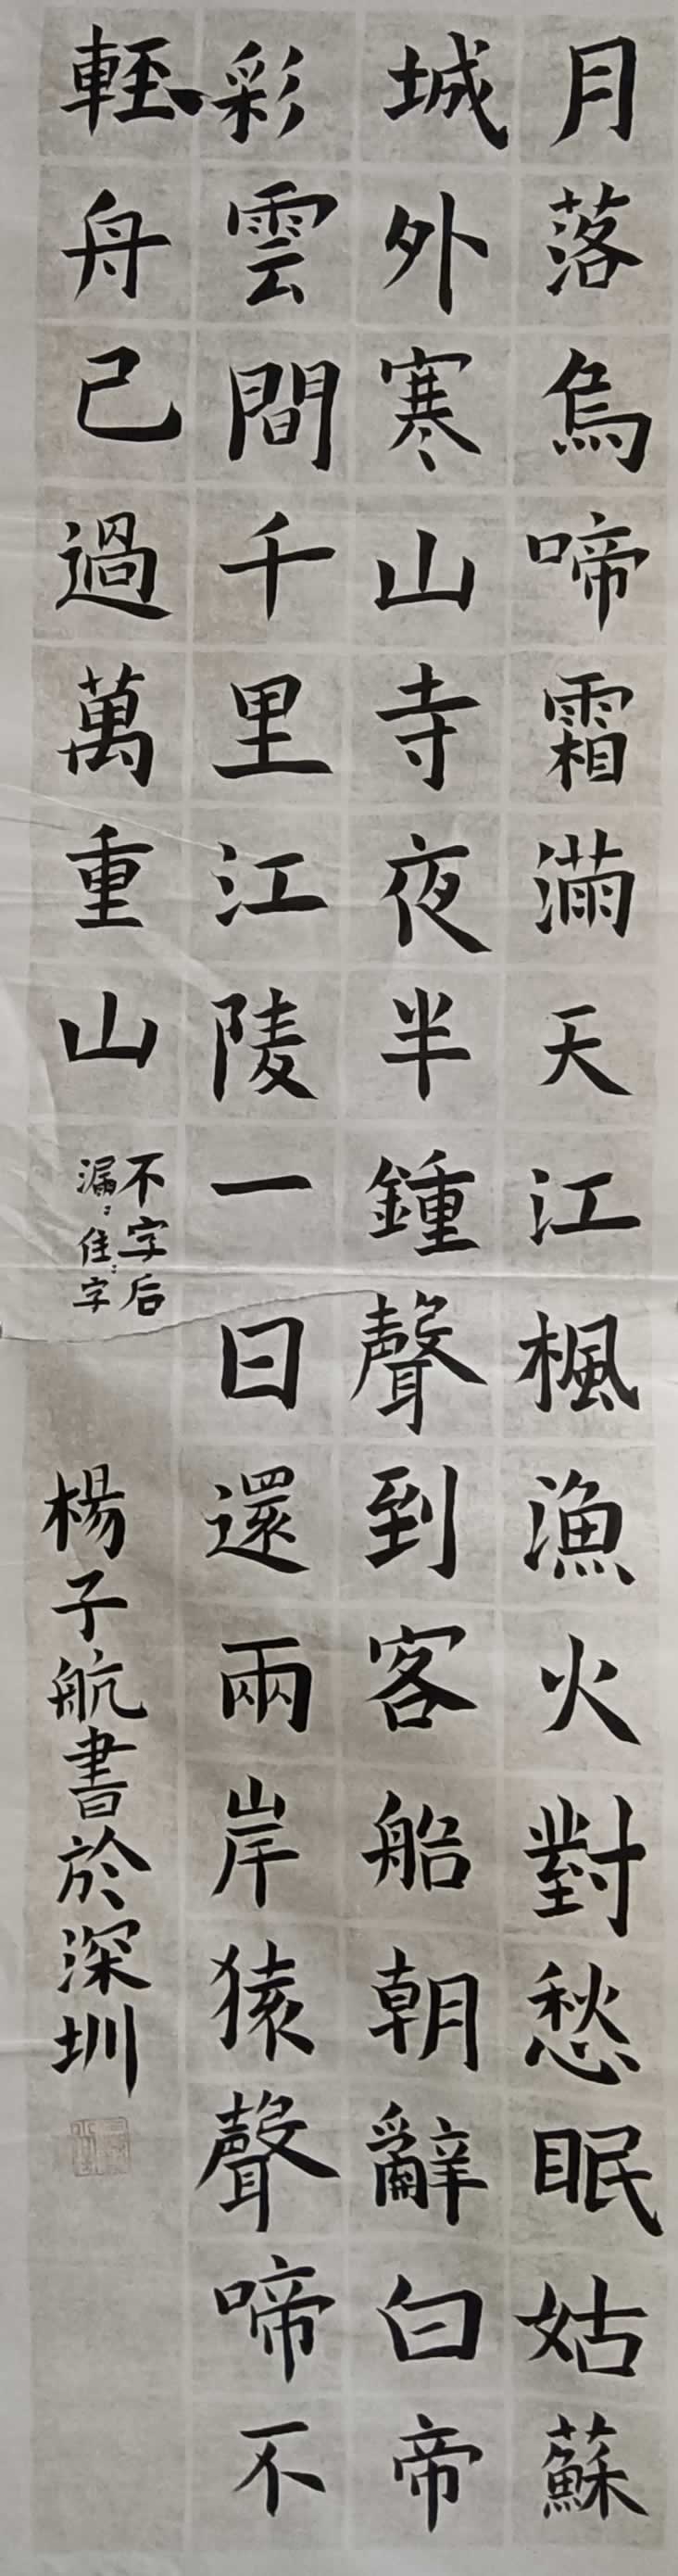 月落烏啼霜滿天江楓漁火對愁眠姑蘇
城外寒山寺夜半鍾聲到客船朝辭白帝
彩雲間千里江陵一日還兩岸猿聲啼不
輕舟已過萬重山
不字后
漏:住:字
楊子航書於深圳